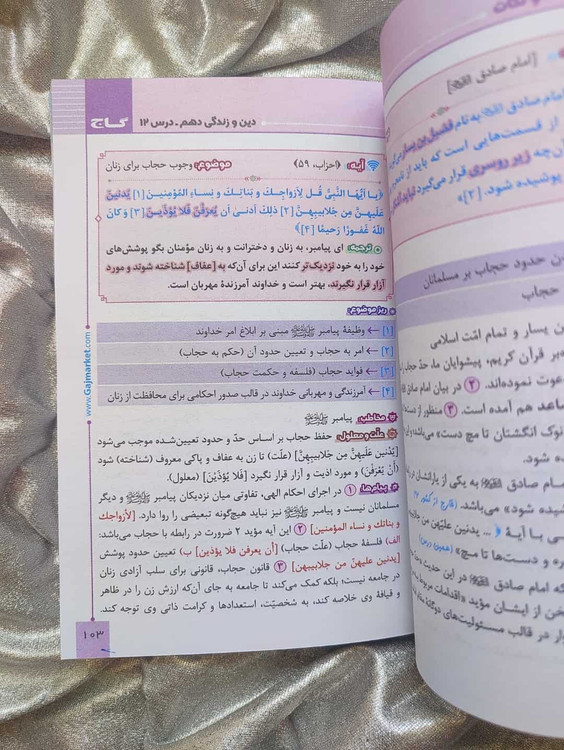 گاج
دین و زندگی دهم ـ درس ۱۲
آیه: (احزاب، ۵۹) موضوع: وجوب حجاب برای زنان
﴿یا أَیُّهَا النَّبِیُّ قُل لِأَزواجِكَ وَ بَناتِكَ وَ نِساءِ المُؤمِنینَ [۱] یُدنینَ
عَلَیهِنَّ مِن جَلابیبِهِنَّ [۲] ذلِكَ أَدنىٰ أَن یُعرَفنَ فَلا یُؤذَینَ [۳] وَ كانَ
اللّهُ غَفورًا رَحیمًا [۴]﴾
ترجمه: ای پیامبر، به زنان و دخترانت و به زنان مؤمنان بگو پوشش‌های
خود را به خود نزدیک‌تر کنند این برای آن‌که به [عفاف] شناخته شوند و مورد
آزار قرار نگیرند، بهتر است و خداوند آمرزندهٔ مهربان است.
ریز موضوع:
[۱] ← وظیفهٔ پیامبر ﷺ مبنی بر ابلاغ امر خداوند
[۲] ← امر به حجاب و تعیین حدود آن (حکم به حجاب)
[۳] ← فواید حجاب (فلسفه و حکمت حجاب)
[۴] ← آمرزندگی و مهربانی خداوند در قالب صدور احکامی برای محافظت از زنان
مخاطب: پیامبر ﷺ
علّت و معلول: حفظ حجاب بر اساس حدّ و حدود تعیین‌شده موجب می‌شود
[یُدنینَ عَلَیهِنَّ مِن جَلابیبِهِنَّ] (علّت) تا زن به عفاف و پاکی معروف (شناخته) شود
(أَن یُعرَفنَ) و مورد اذیت و آزار قرار نگیرد [فَلا یُؤذَینَ] (معلول).
پیام‌ها: ۱ در اجرای احکام الهی، تفاوتی میان نزدیکان پیامبر ﷺ و دیگر
مسلمانان نیست و پیامبر ﷺ نیز نباید هیچ‌گونه تبعیضی را روا دارد. [لأزواجك و
بناتك و نساء المؤمنین] ۲ این آیه مؤید ۲ ضرورت در رابطه با حجاب می‌باشد:
الف) فلسفهٔ حجاب (علّت حجاب) [أن یعرفن فلا یؤذین] ب) تعیین حدود پوشش
[یدنین علیهنّ من جلابیبهن] ۳ قانون حجاب، قانونی برای سلب آزادی زنان
در جامعه نیست؛ بلکه کمک می‌کند تا جامعه به جای آن‌که ارزش زن را در ظاهر
و قیافهٔ وی خلاصه کند، به شخصیّت، استعدادها و کرامت ذاتی وی توجه کند.
۱۰۳
www.Gajmarket.com
و نکات
[امام صادق]
امام صادق به نام فضیل بن یسار
از قسمت‌هایی است که باید از نامحرم
آن‌چه زیر روسری قرار می‌گیرد نباید
پوشیده شود. [۲]»
حدود حجاب بر مسلمانان
حجاب
بن یسار و تمام امّت اسلامی
بر قرآن کریم، پیشوایان ما، حدّ حجاب را
دعوت نموده‌اند. ۲ در بیان امام صادق
هم آمده است. ۳ منظور از
نوک انگشتان تا مچ دست» می‌باشد
شود.
صادق به یکی از یارانشان
شیده شود» می‌باشد. (خارج از کشور ۹۴)
با آیهٔ ﴿... یدنین علیهنّ من
و دست‌ها تا مچ» (همین درس)
که امام صادق در این حدیث
خن از ایشان مؤید «اقدامات مربوط به
در قالب مسئولیت‌های